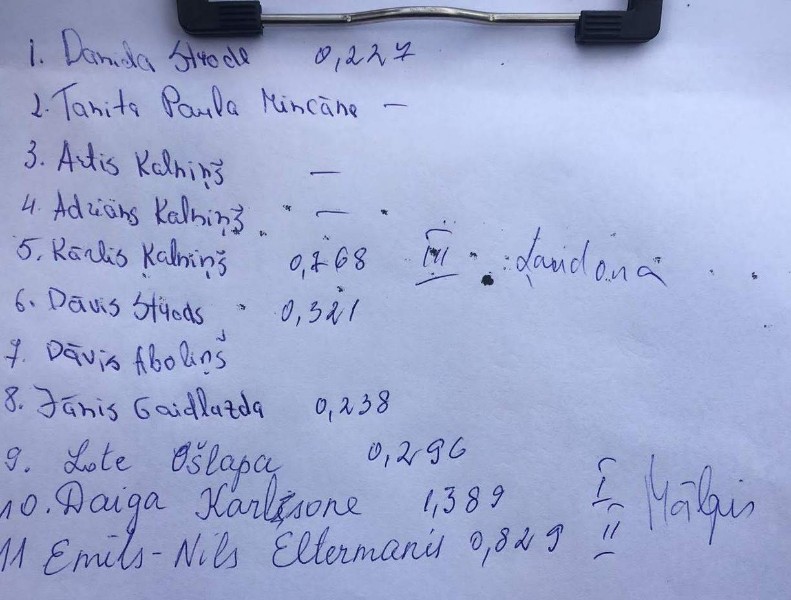 1. Danida Strode 0,227
2. Tanita Paula Mincāne —
3. Artis Kalniņš —
4. Adriāns Kalniņš —
5. Kārlis Kalniņš 0,768 III Ļaudona
6. Dāvis Strods 0,321
7. Dāvis Āboliņš
8. Jānis Gaidlazda 0,238
9. Lote Ošlapa 0,296
10. Daiga Karlsone 1,389 I Mālpils
11 Emīls-Nils Eltermanis 0,829 II